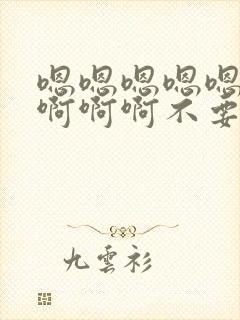 嗯嗯嗯嗯嗯
啊啊啊不要
九雲衫